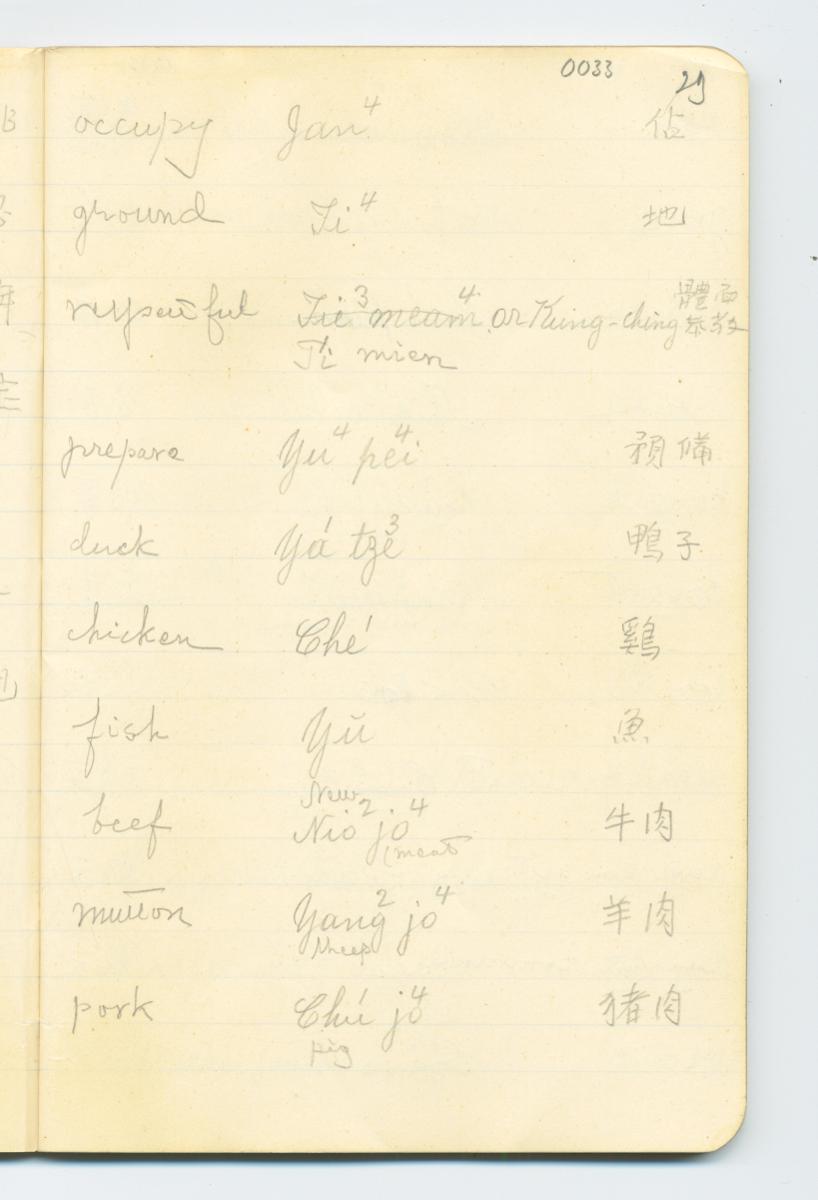 0033
29
occupy Jan⁴ 佔
ground Ti⁴ 地
respectful Tie³ meam⁴ or Kung-ching 體面 恭敬
Ti mien
prepare Yu⁴ pei⁴ 預備
duck Yá tze³ 鴨子
chicken Ché 鷄
fish Yŭ 魚
New
beef Nio² jo⁴ 牛肉
(meat
mutton Yang² jo⁴ 羊肉
sheep
pork Chú jo⁴ 猪肉
pig